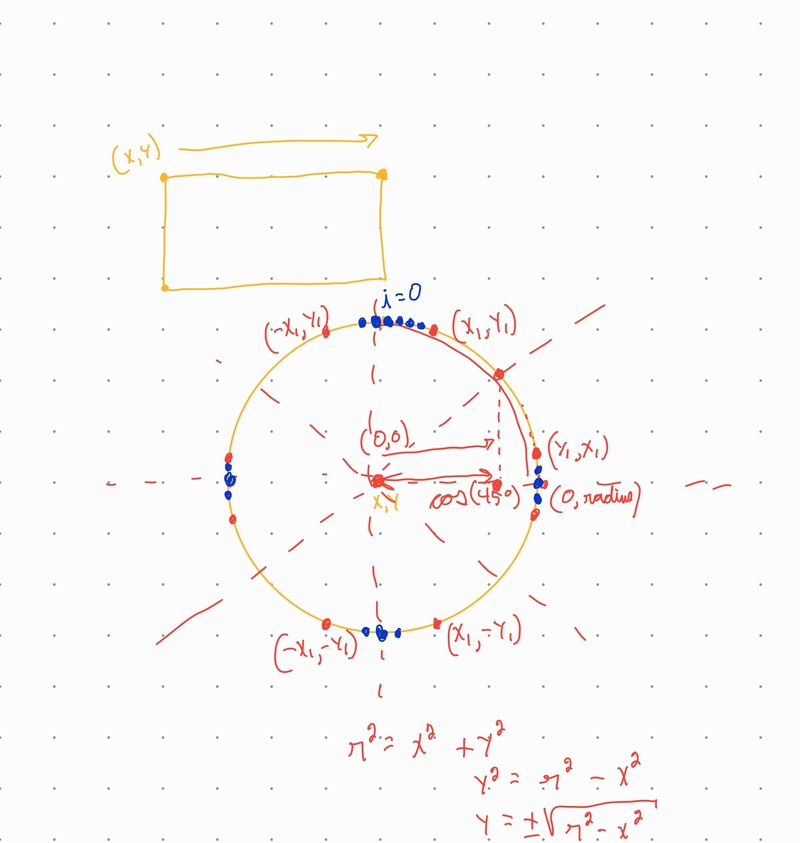 (x,y)
i=0
(-x₁,y₁)
(x₁,y₁)
(0,0)
(y₁,x₁)
x,y
cos(45°)
(0,radius)
(-x₁,-y₁)
(x₁,-y₁)
r² = x² + y²
y² = r² - x²
y = ±√(r² - x²)